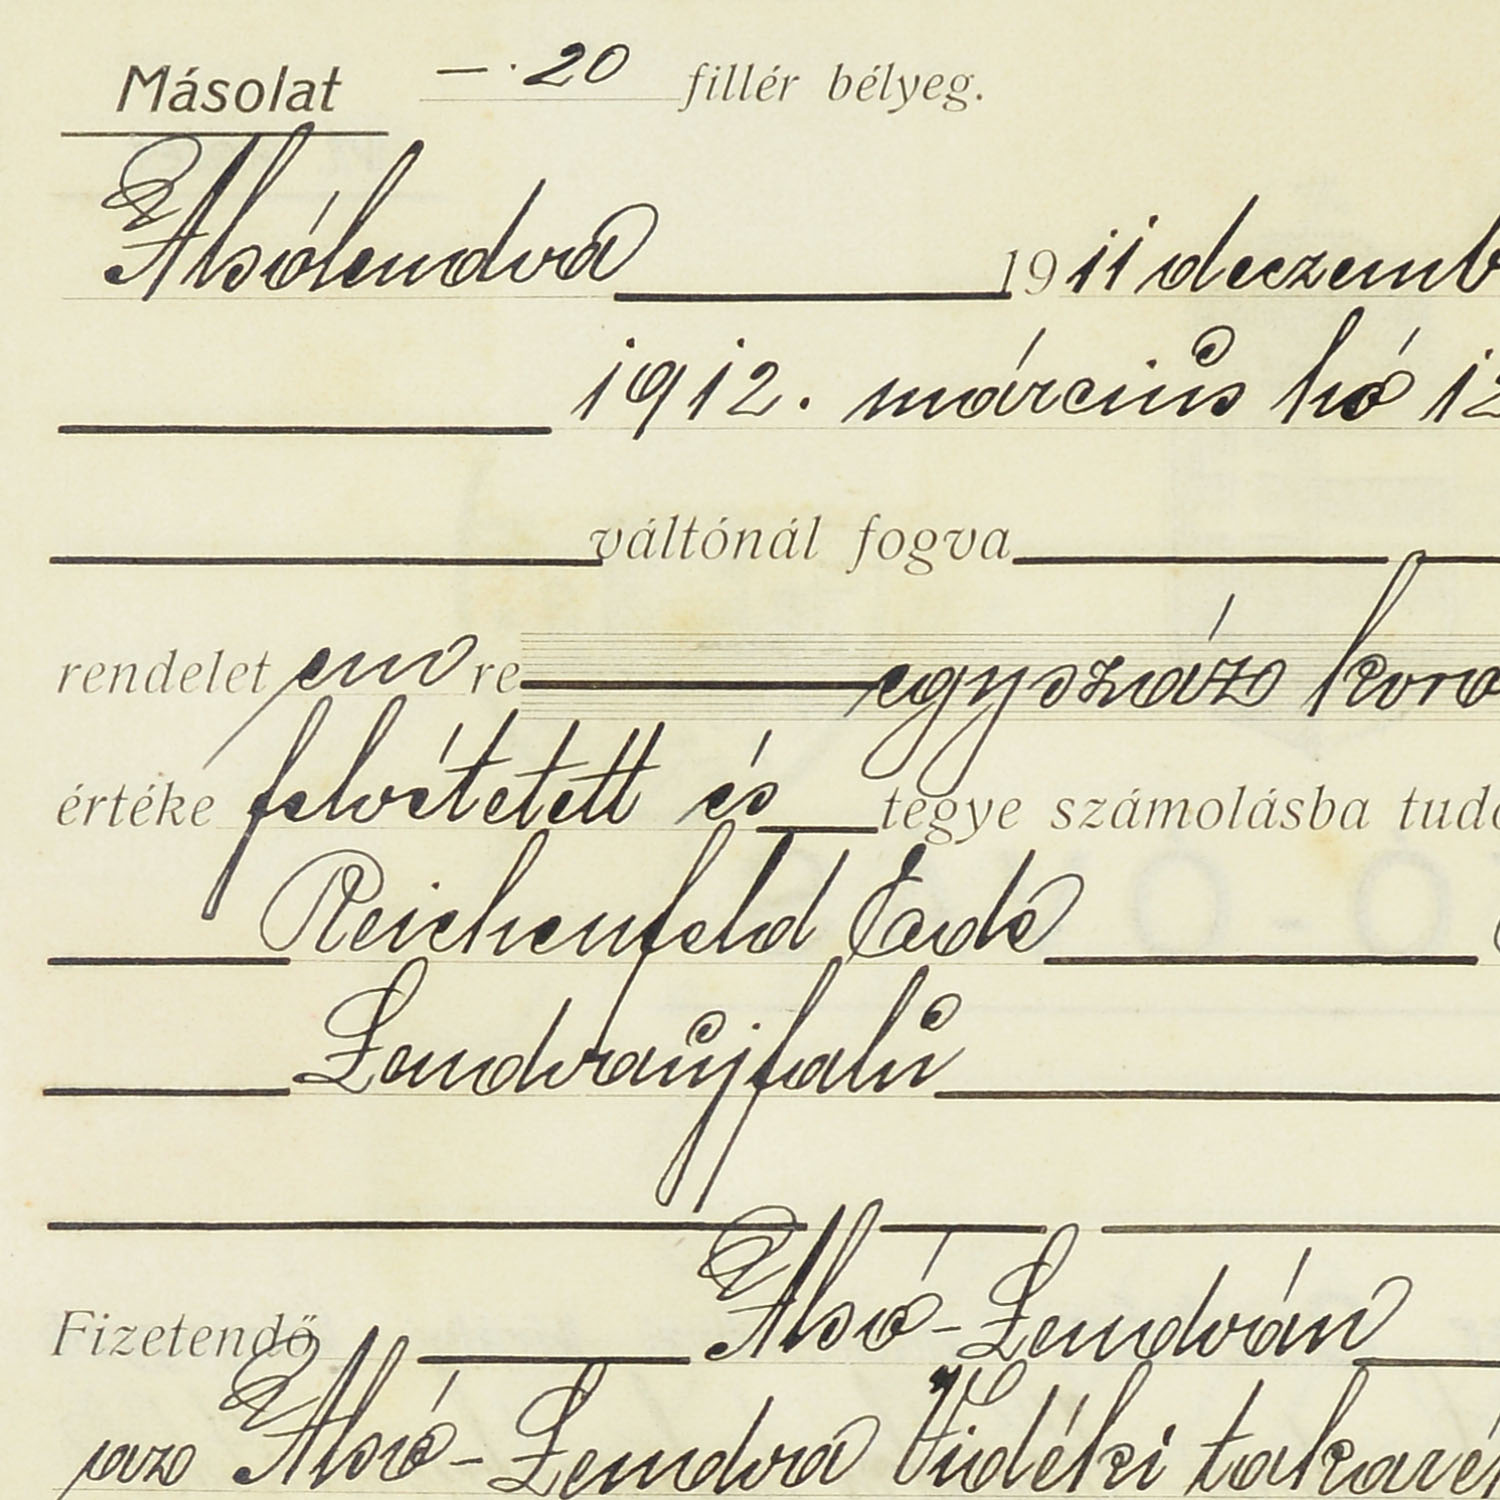 Másolat —.20 fillér bélyeg.
Alsólendva 1911 deczemb
1912. március hó 12
váltónál fogva
rendelet em re egyszáz koro
értéke felvétetett és tegye számolásba tudó
Reichenfeld Ede
Lendvaújfalu
Fizetendő Alsó-Lendván
az Alsó-Lendva Vidéki takaré